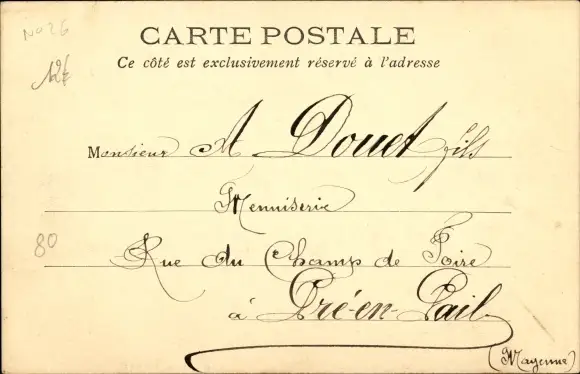 No 26
CARTE POSTALE
Ce côté est exclusivement réservé à l'adresse
Monsieur A Douet fils
Menuiserie
80
Rue du Champs de Foire
à Pré-en-Pail
(Mayenne)